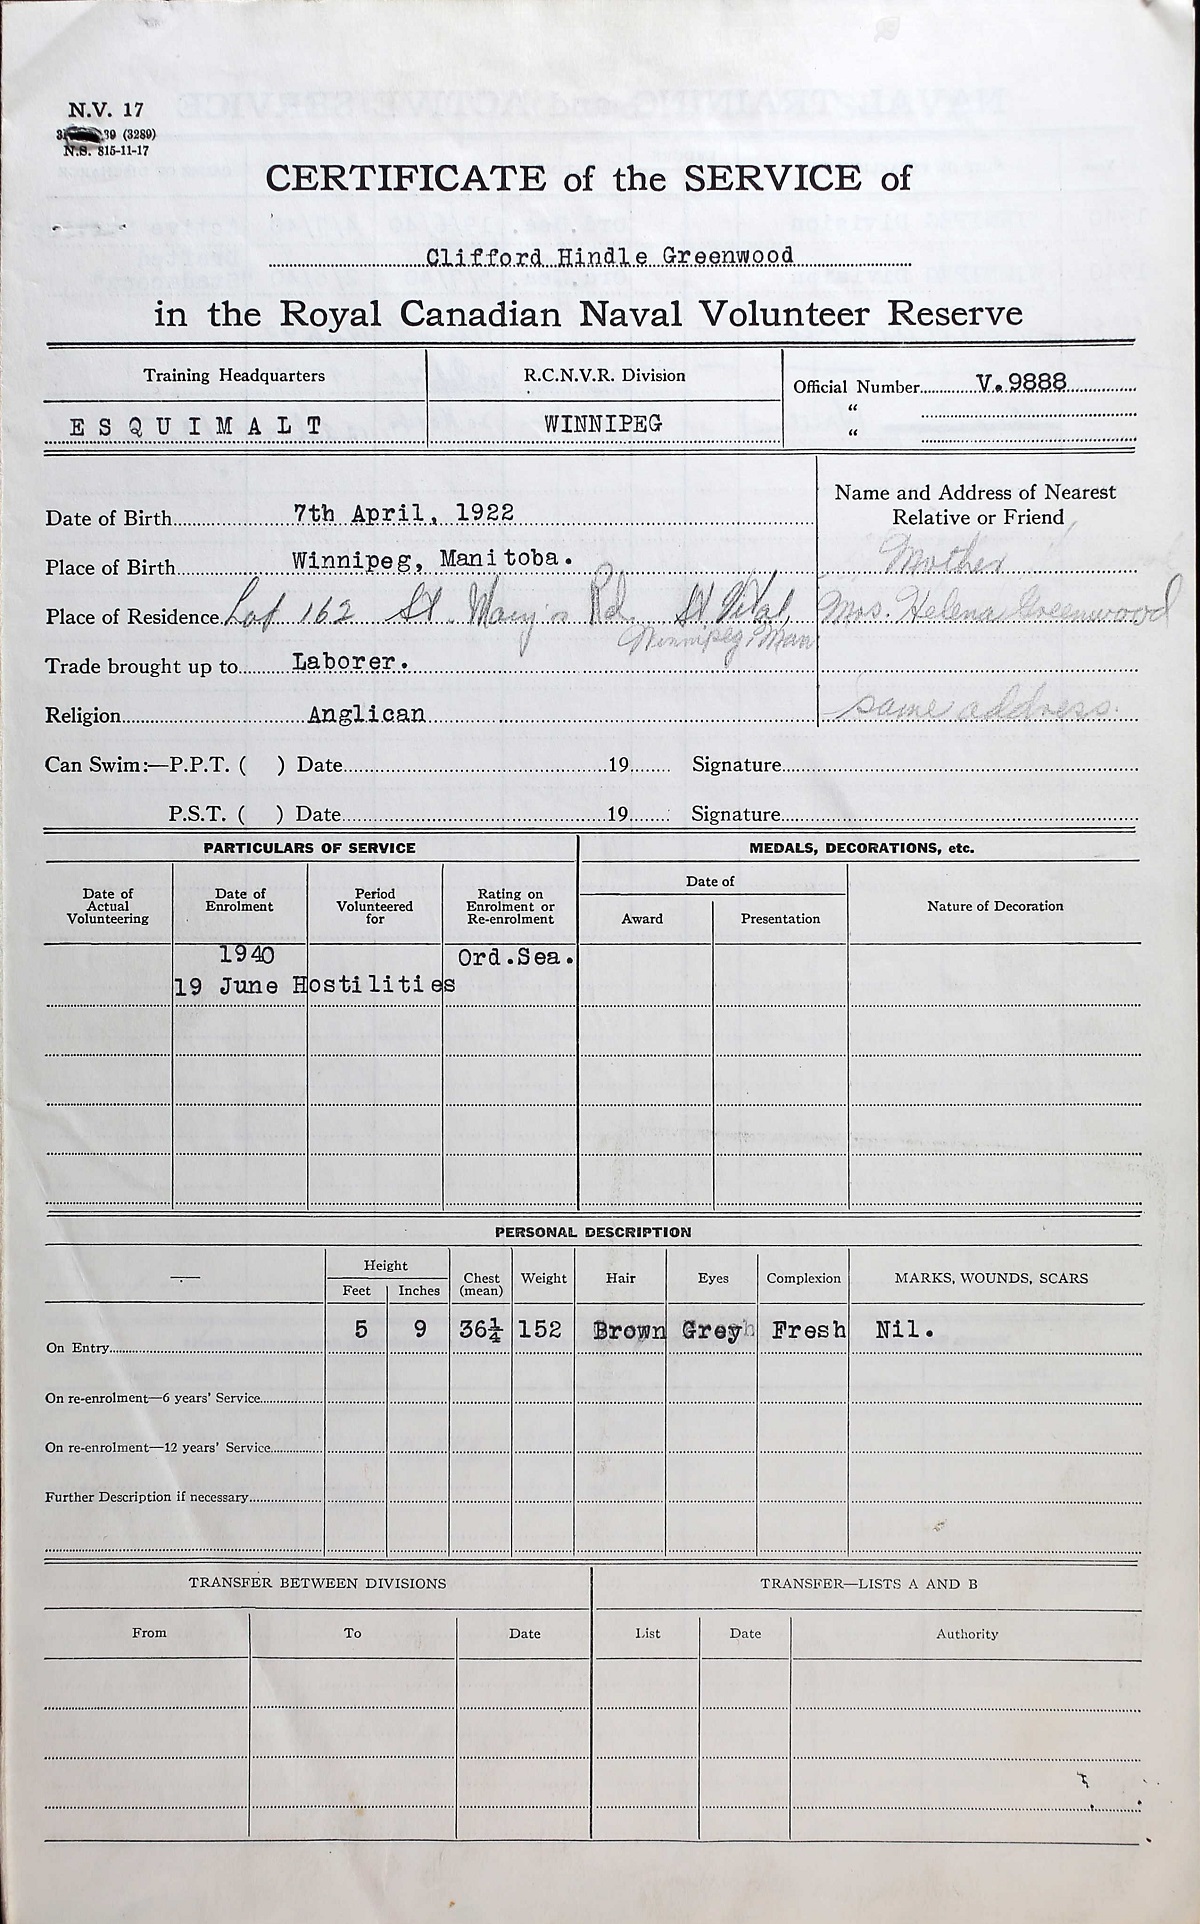 N.V. 17
39 (3289)
N.S. 815-11-17
CERTIFICATE of the SERVICE of
Clifford Hindle Greenwood
in the Royal Canadian Naval Volunteer Reserve
Training Headquarters
ESQUIMALT
R.C.N.V.R. Division
WINNIPEG
Official Number V. 9888
"
"
Date of Birth 7th April, 1922
Place of Birth Winnipeg, Manitoba.
Place of Residence Lot 162 St. Mary's Rd. St Vital,
Winnipeg, Man
Trade brought up to Laborer.
Religion Anglican
Name and Address of Nearest
Relative or Friend
Mother
Mrs. Helena Greenwood
same address.
Can Swim:—P.P.T. ( ) Date 19 Signature
P.S.T. ( ) Date 19 Signature
PARTICULARS OF SERVICE
MEDALS, DECORATIONS, etc.
Date of
Actual
Volunteering
Date of
Enrolment
Period
Volunteered
for
Rating on
Enrolment or
Re-enrolment
Date of
Award
Presentation
Nature of Decoration
1940 Ord.Sea.
19 June Hostilities
PERSONAL DESCRIPTION
Height
Feet Inches
Chest
(mean)
Weight
Hair
Eyes
Complexion
MARKS, WOUNDS, SCARS
On Entry 5 9 36¼ 152 Brown Grey Fresh Nil.
On re-enrolment—6 years' Service
On re-enrolment—12 years' Service
Further Description if necessary
TRANSFER BETWEEN DIVISIONS
TRANSFER—LISTS A AND B
From To Date List Date Authority